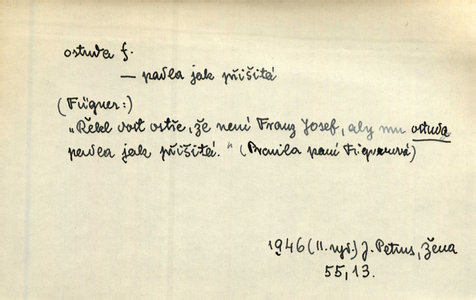 ostuda f.
— padla jak přišitá
(Fügner:)
"Řekl dost ostře, že není Franz Josef, aby mu ostuda
padla jak přišitá." (Pravila paní Fügnerová)
1946 (II. vyd.) J. Petrus, Žena
55, 13.